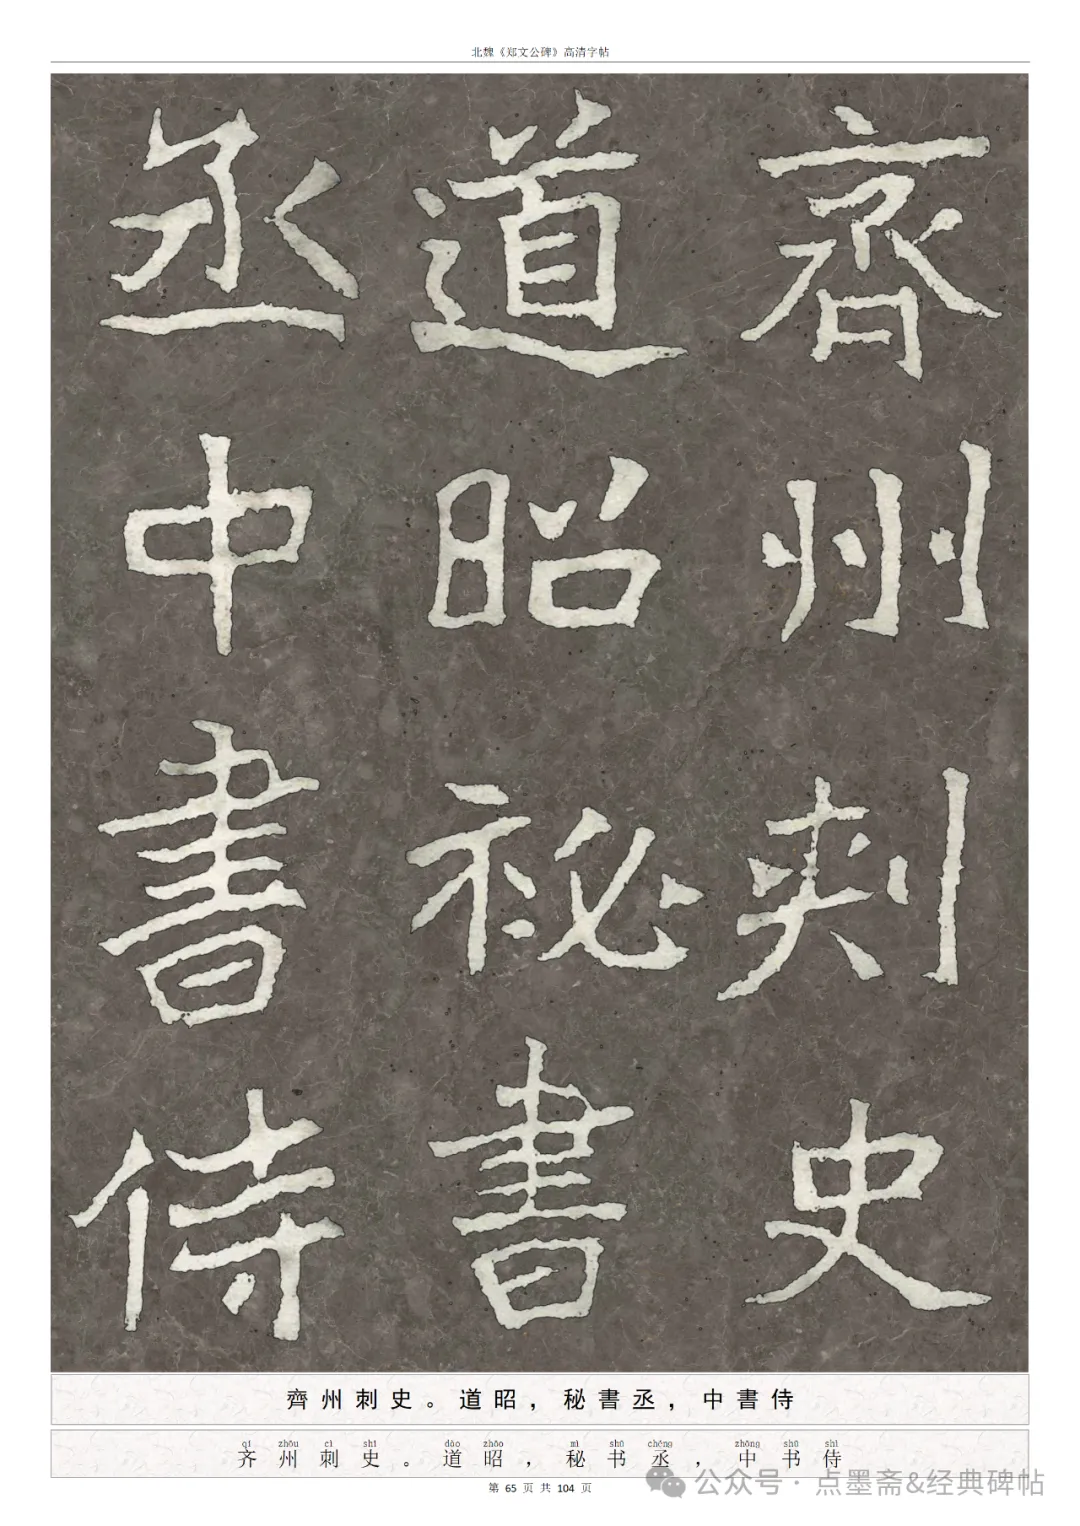 北魏《郑文公碑》高清字帖
齊州刺史
道昭祕書
丞中書侍
齊州刺史。道昭，秘書丞，中書侍
qí zhōu cì shǐ dào zhāo mì shū chéng zhōng shū shì
齐州刺史。道昭，秘书丞，中书侍
第 65 页 共 104 页
公众号 · 点墨斋&经典碑帖